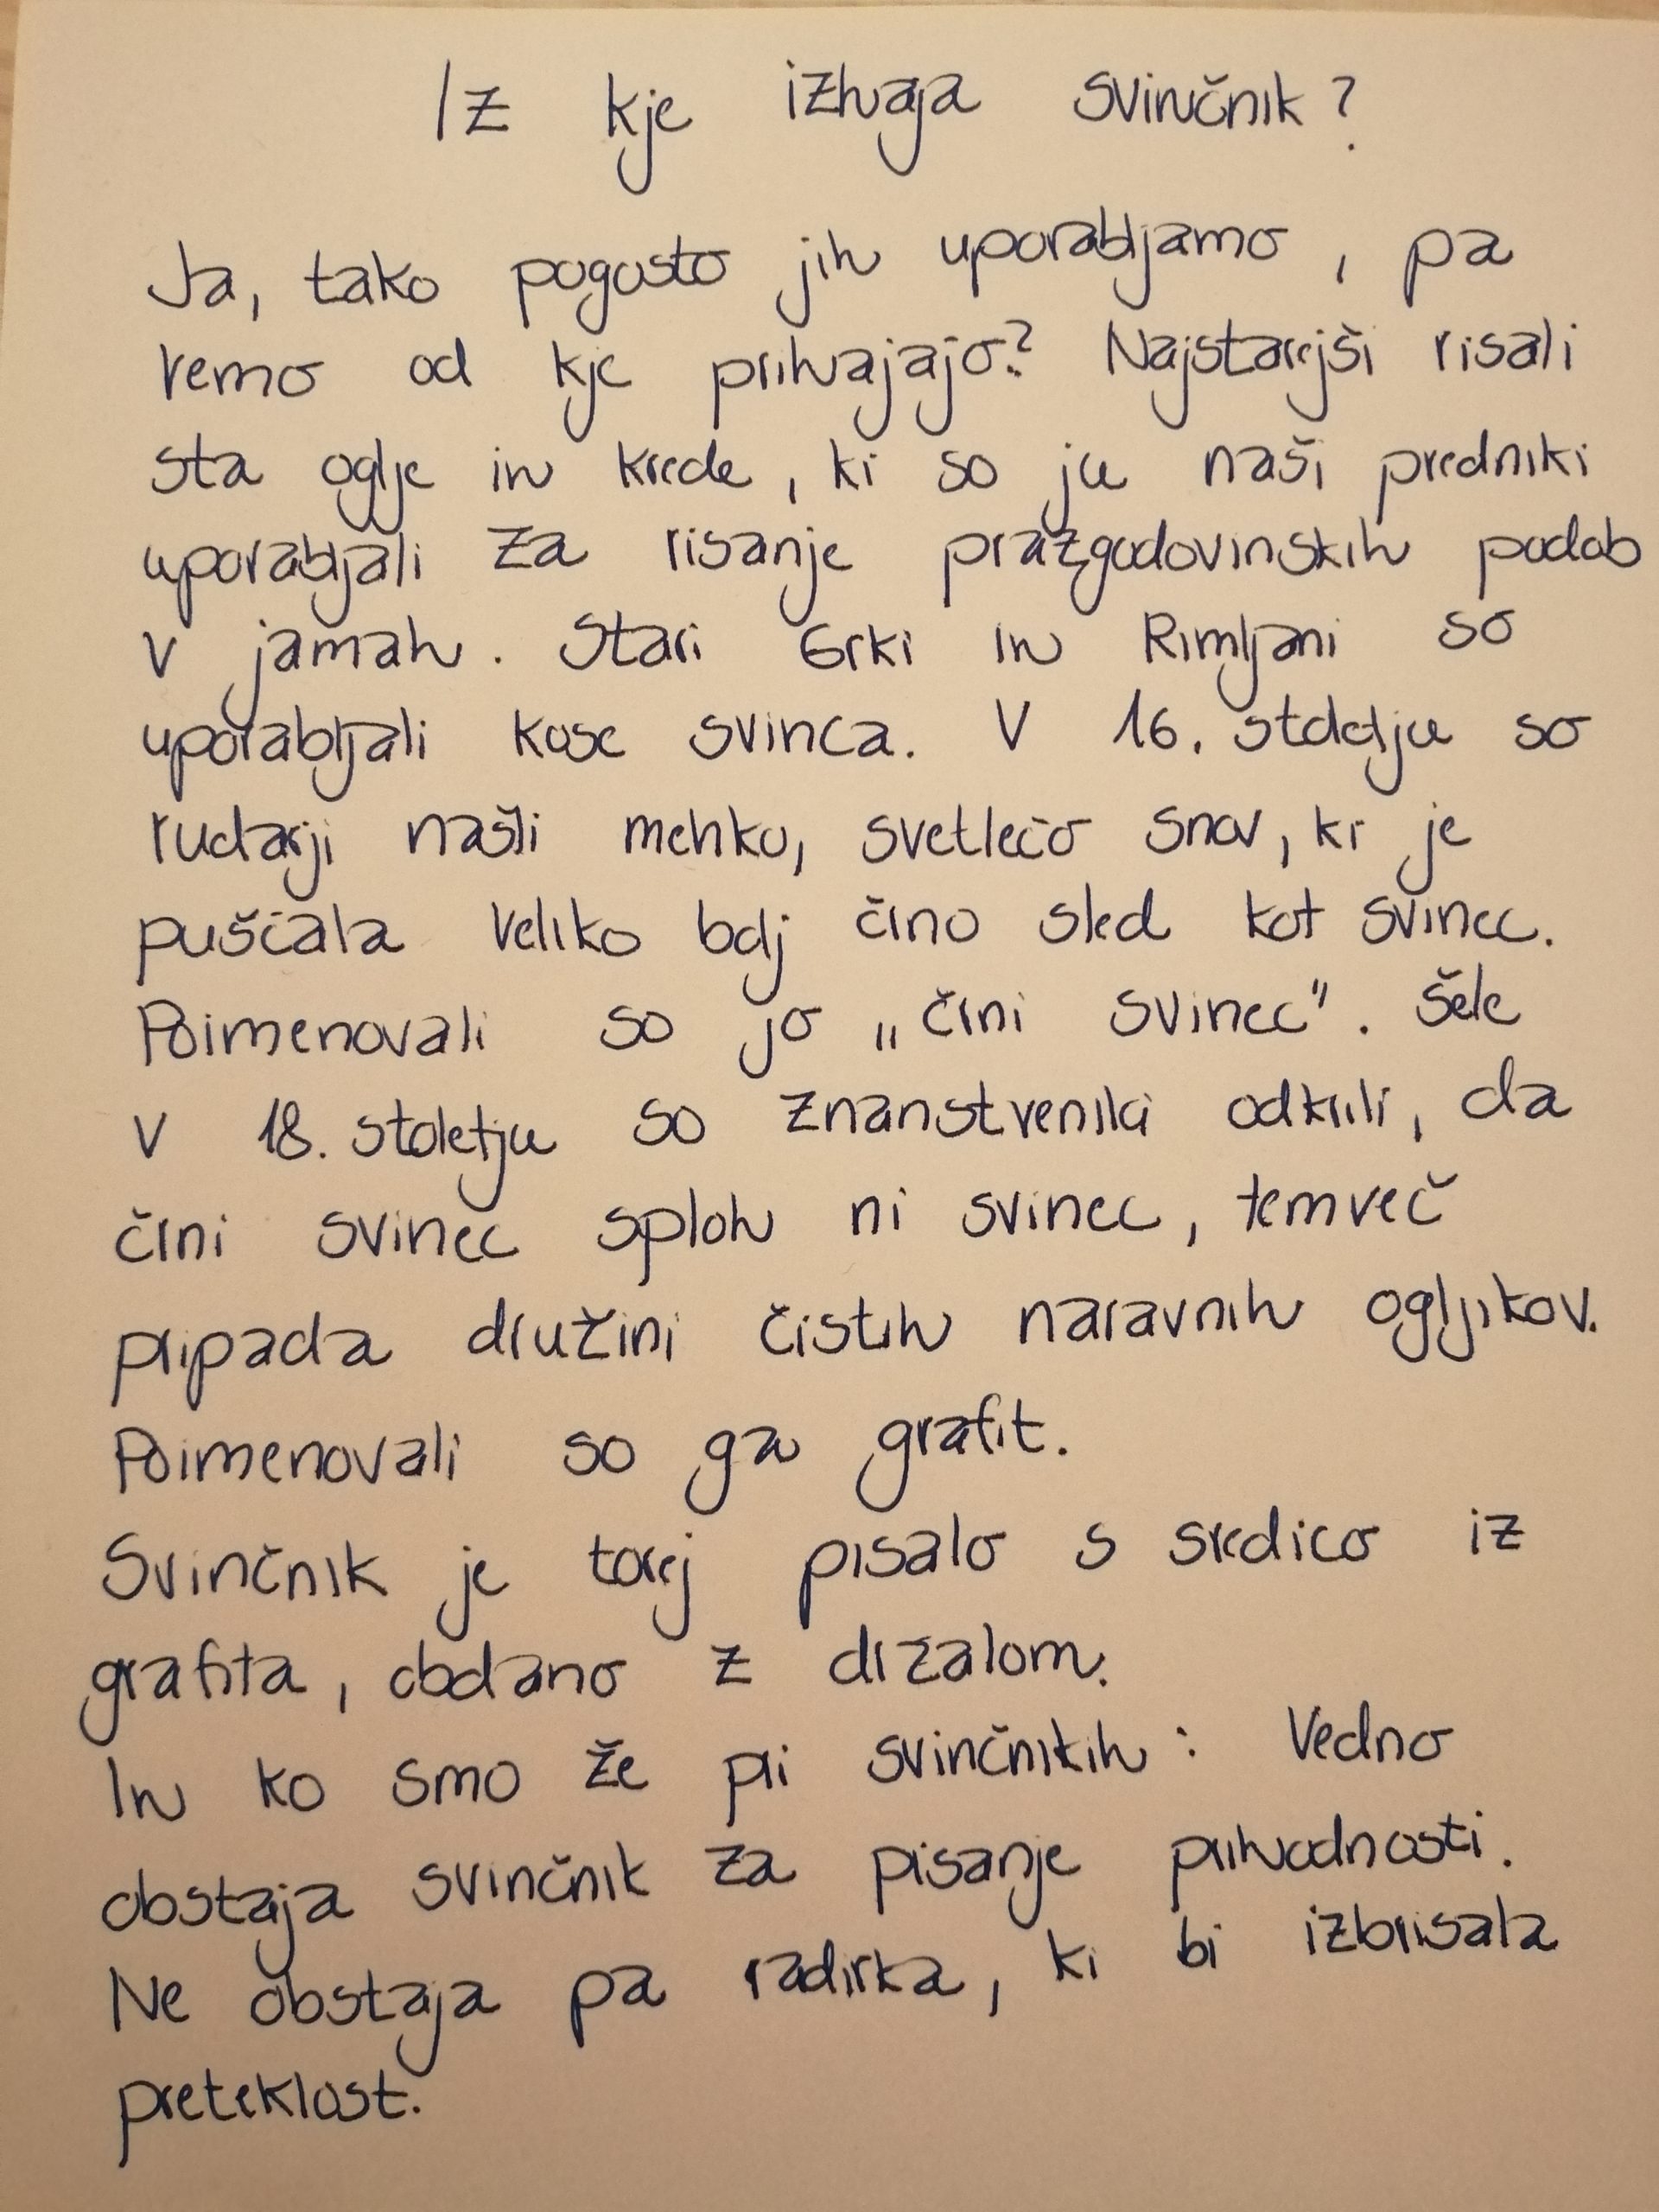 Iz kje izhaja svinčnik?
Ja, tako pogosto jih uporabljamo, pa
vemo od kje prihajajo? Najstarejši risali
sta oglje in krede, ki so ju naši predniki
uporabljali za risanje prazgodovinskih podob
v jamah. Stari Grki in Rimljani so
uporabljali kose svinca. V 16. stoletju so
rudarji našli mehko, svetlečo snov, ki je
puščala veliko bolj črno sled kot svinec.
Poimenovali so jo „črni svinec". Šele
v 18. stoletju so znanstveniki odkrili, da
črni svinec sploh ni svinec, temveč
pripada družini čistih naravnih ogljikov.
Poimenovali so ga grafit.
Svinčnik je torej pisalo s sredico iz
grafita, obdano z držalom.
In ko smo že pri svinčnikih: Vedno
obstaja svinčnik za pisanje prihodnosti.
Ne obstaja pa radirka, ki bi izbrisala
preteklost.